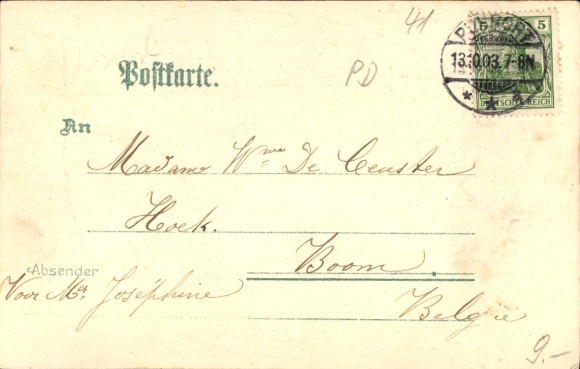 41
5
13.10.03. 7-8N.
* * a
DEUTSCHES REICH
Postkarte.
PD
An
Madame Wwe De Ceuster
Hoek.
Boom.
Absender
Voor Me Joséphine
Belgïe
9.-